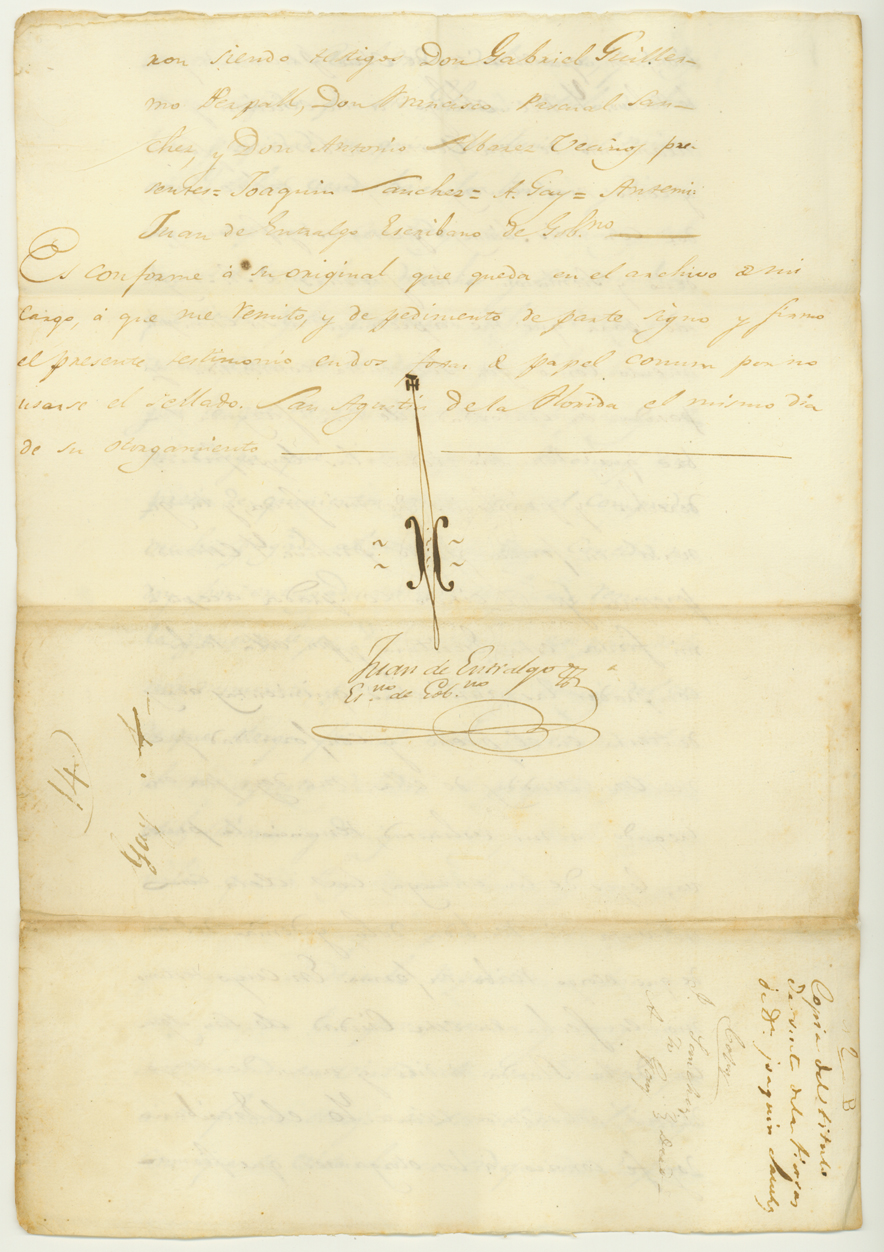 ron siendo testigos Don Gabriel Guiller-
mo Perpall, Don Francisco Pascual San-
chez, y Don Antonio Alvarez Vecinos pre-
sentes= Joaquin Sanchez= A. Gay= Antemi:
Juan de Entralgo Escribano de Gob.no
Es conforme á su original que queda en el archivo de mi
cargo, á que me remito, y de pedimento de parte signo y firmo
el presente testimonio en dos foxas de papel comun por no
usarse el sellado. San Agustin de la Florida el mismo dia
de su otorgamiento
Juan de Entralgo
Es.no de Gob.no
Copia del titulo
de venta de la tierras
de Dn joaquin Sanchez
B
Copy
J Sanchez
To
A Gay